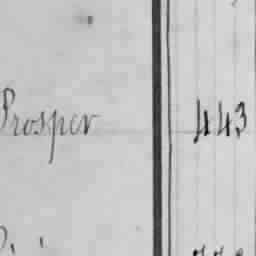 Prosper 443